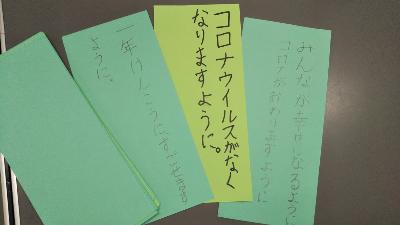 みんなが幸せになるように
コロナが終わりますように
コロナウイルスがなく
なりますように。
一年けんこうにすごせます
ように。